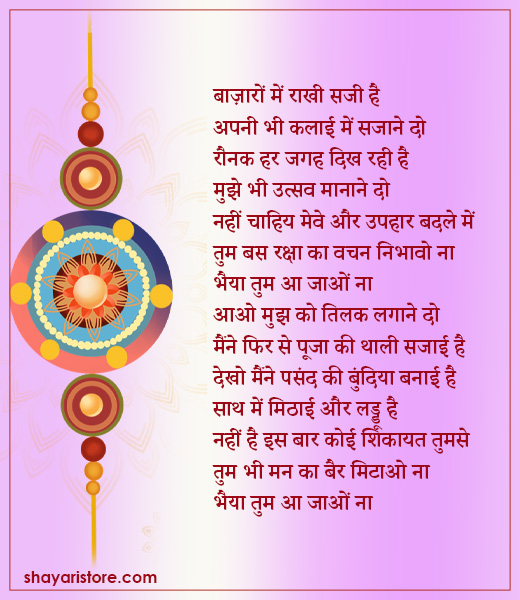 बाज़ारों में राखी सजी है
अपनी भी कलाई में सजाने दो
रौनक हर जगह दिख रही है
मुझे भी उत्सव मानाने दो
नहीं चाहिय मेवे और उपहार बदले में
तुम बस रक्षा का वचन निभावो ना
भैया तुम आ जाओं ना
आओ मुझ को तिलक लगाने दो
मैंने फिर से पूजा की थाली सजाई है
देखो मैंने पसंद की बुंदिया बनाई है
साथ में मिठाई और लड्डू है
नहीं है इस बार कोई शिकायत तुमसे
तुम भी मन का बैर मिटाओ ना
भैया तुम आ जाओं ना
shayaristore.com